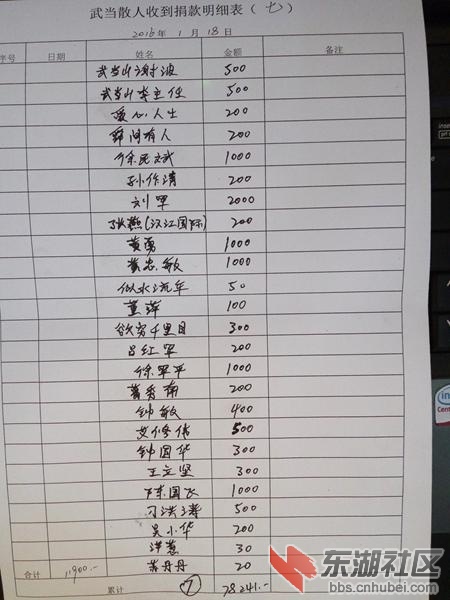 武当散人收到捐款明细表（七）
2016年1月18日
序号 日期 姓名 金额 备注
武当山谢波 500
武当山李主任 500
爱心人生 200
舜间有人 200
徐民斌 1000
孙作清 200
刘军 2000
张燕(汉江国际) 200
黄勇 1000
黄忠敏 1000
似水流年 50
董萍 100
欲穷千里目 300
吕红军 200
徐军平 1000
200
钟敏 400
艾修伟 500
钟国华 300
王立坚 300
陈国飞 1000
刁洪涛 500
吴小华 200
洋葱 30
苏丹丹 20
合计 11900.-
累计 ⑦ 78241.-
inte
Cent
东湖社区
bbs.cnhubei.com